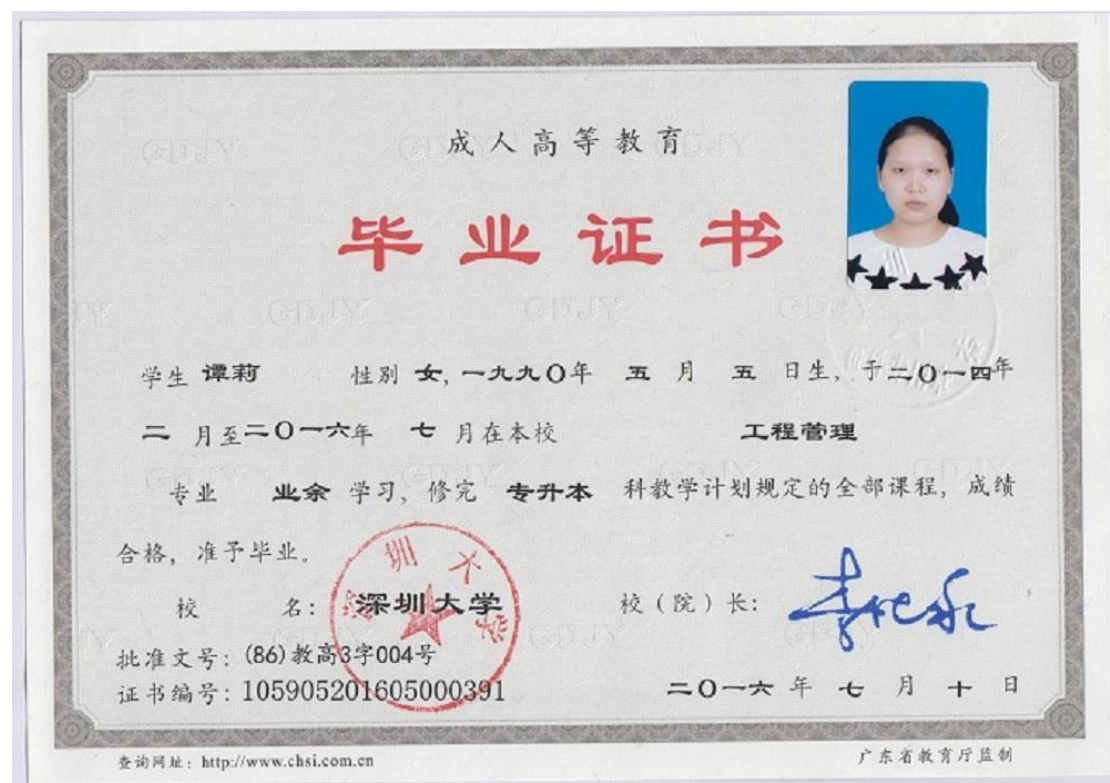 成人高等教育
毕业证书
学生 谭莉 性别 女, 一九九〇年 五 月 五 日生, 于二〇一四年
二 月至二〇一六年 七 月在本校 工程管理
专业 业余 学习, 修完 专升本 科教学计划规定的全部课程, 成绩
合格, 准予毕业。
校 名: 深圳大学 校(院)长: 李清泉
深圳大学
批准文号: (86)教高3字004号
证书编号: 105905201605000391 二〇一六 年 七 月 十 日
查询网址: http://www.chsi.com.cn 广东省教育厅监制
GDJY